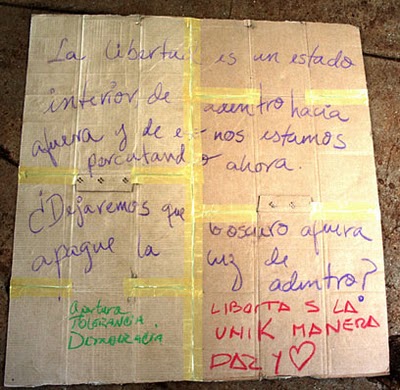 La liberta es un estado
interior de adentro hacia
afuera y de e nos estamos
percatando ahora.
¿Dejaremos que lo oscuro afuera
apague la luz de adentro?
Apertura
TOLERANCIA
DEMOCRACIA
LIBERTA S LA
UNIK MANERA
PAZ Y ♡